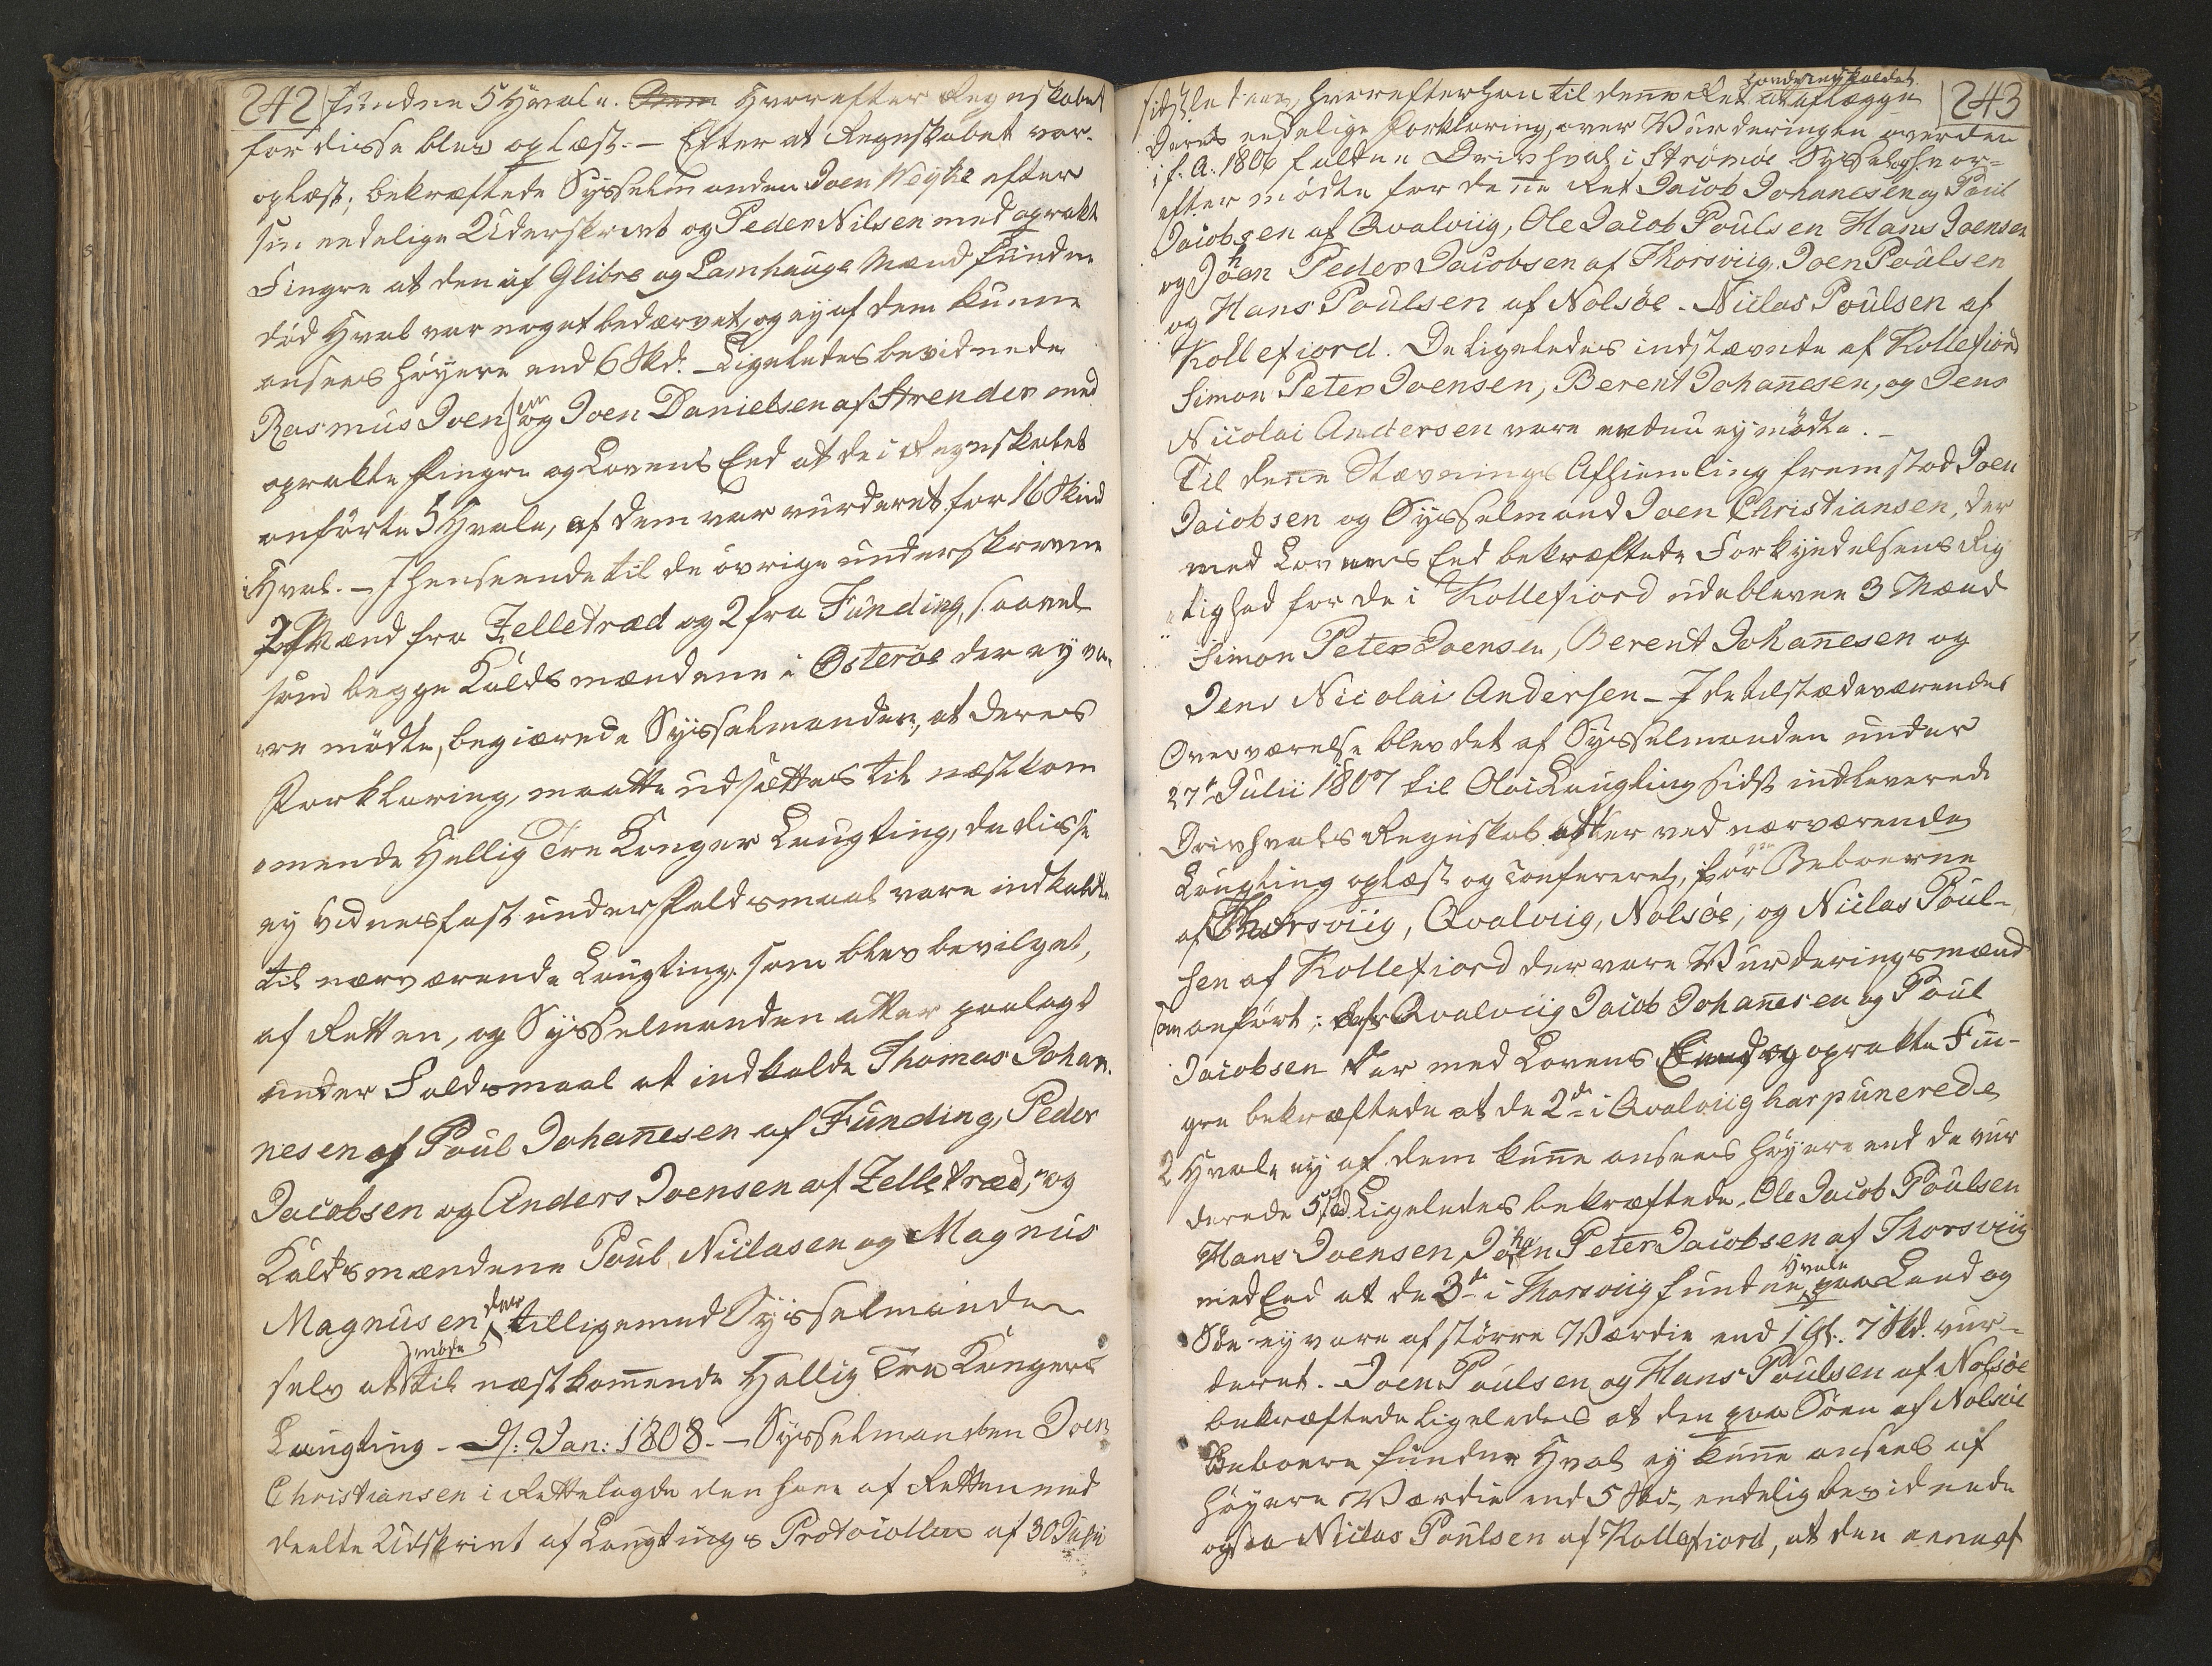 242
fundne 5 Hvale. Hvorefter Regnskabet
for disse blev oplæst. – Efter at Regnskabet var
oplæst, bekræftede Sysselmanden Joen Weyhe efter
sin eedelige Underskrivt og Peder Nilsen med oprakt
Fingre at den af Glibre og Lamhauge Mænd fundne
død Hval var noget bedærvet, og ey af dem kunne
ansees høyere end 6 Skd. – Ligeledes bevidnede
Rasmus Joensen og Joen Danielsen af Strender med
oprakte Fingre og Lovens Eed at de i Regnskabet
anførte 5 Hvale, af dem var vurderet for 16 Skind
Hval. – I henseende til de øvrige underskrevne
2 Mænd fra Zelletræd og 2 fra Funding, saavel
som begge Kaldsmændene i Østerøe der ey va-
re mødte, begiærede Sysselmanden, at deres
Forklaring, maatte udsættes til næstkom
mende Hellig Tre Konger Laugting, da disse
ey vidnesfast under Faldsmaal vare indkaldte
til nærværende Laugting, som blev bevilget,
af Retten, og Sysselmanden atter paalagt
under Faldsmaal at indkalde Thomas Johan-
nesen af Poul Johannesen af Funding, Peder
Jacobsen og Anders Joensen af Zelletræd, og
Kaldsmændene Poul Niclasen og Magnus
Magnusen der tilligemed Sysselmanden
selv at møde til næstkommende Hellig Tre Kongers
Laugting – d: 9 Jan: 1808. – Sysselmanden Joen
Christiansen i Rettelagde den ham af Retten med
deelte Udskrivt af Laugtings Protocollen af 30 Julii
243
sidstleden, hvorefter han til denne Ret havde indkaldet at aflægge
Deres eedelige Forklaring, over Vurderingen over den
i f. A. 1806 faldne Drivhval i Strømøe Syssel, hvor-
efter mødte for denne Ret Jacob Johannesen og Poul
Jacobsen af Qvalviig, Ole Jacob Poulsen Hans Joensen
og Johen Peder Jacobsen af Thorsviig, Joen Poulsen
og Hans Poulsen af Nolsøe. Niclas Poulsen af
Kollefiord. De ligeledes indstævnte af Kollefiord
Simon Peter Joensen, Berent Johannesen, og Jens
Nicolai Andersen vare endnu ey mødte. –
Til denne Stævnings Afhiemling fremstod Joen
Jacobsen og Sysselmand Joen Christiansen, der
med Lovens Eed bekræftede Forkyndelsens Rig
tighed for de i Kollefiord udeblevne 3 Mænd
Simon Peter Joensen, Berent Johannesen og
Jens Nicolai Andersen – I de tilstædeværendes
Overværelse blev det af Sysselmanden under
27de Julii 1807 til Olai Laugting sidst indleverede
Drivhvals Regnskab atter ved nærværende
Laugting oplæst og confereret, for Beboerne
af Thorsviig, Qvalviig, Nolsøe, og Niclas Poul-
sen af Kollefiord der vare Vurderingsmænd
som anført; Qvalviig Jacob Johannesen og Poul
Jacobsen der med Lovens Eed og oprakte Fin-
gre bekræftede at de 2de i Qvalviig harpunerede
2 Hvale ey af dem kunne ansees høyere end de vur
derede 5 Skd. Ligeledes bekræftede Ole Jacob Poulsen
Hans Joensen, Johen Peter Jacobsen af Thorsviig
med Eed at de 3de i Thorsviig fundne Hvale paa Land og
Søe ey vare af større Værdie end 1 Gl. 7 Skd. vur-
deret. Joen Poulsen og Hans Poulsen af Nolsøe
bekræftede ligeledes at den paa Søen af Nolsøe
Beboere fundne Hval ey kunne ansees af
høyere Værdie end 5 Skd., endelig bevidnede
ogsaa Niclas Poulsen af Kollefiord, at den eene af